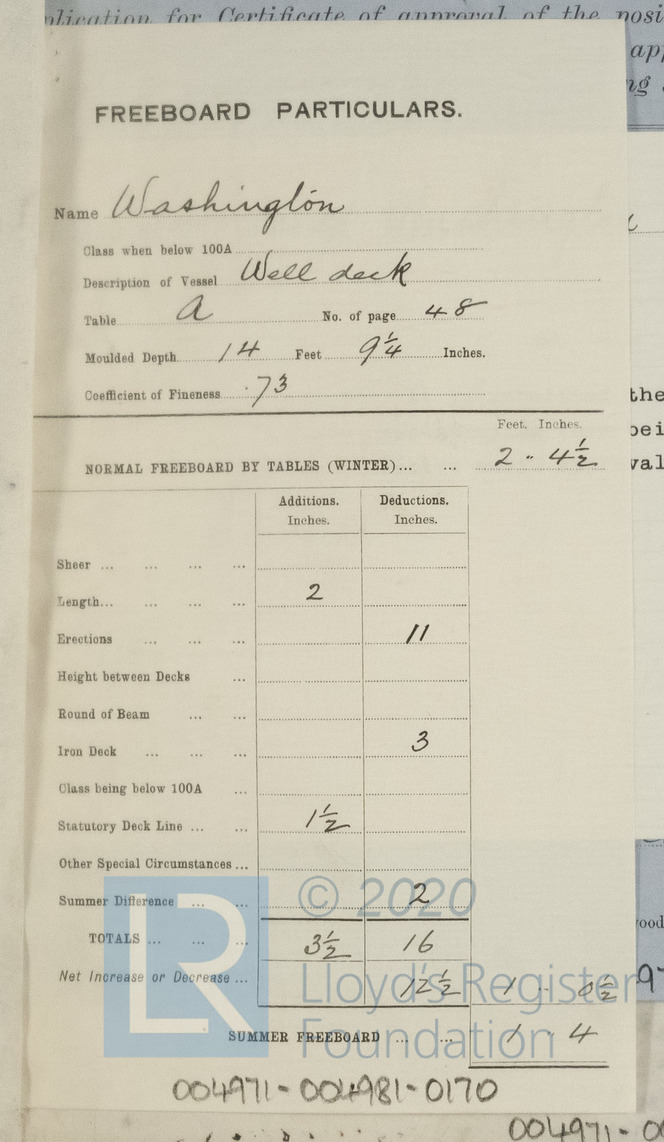 plication for Certificate of approval of the posi
FREEBOARD PARTICULARS.
Name Washington
Class when below 100A
Description of Vessel Well deck
Table A No. of page 48
Moulded Depth 14 Feet 9 1/4 Inches.
Coefficient of Fineness .73
Feet. Inches.
NORMAL FREEBOARD BY TABLES (WINTER)... ... 2 " 4 1/2
Additions. Deductions.
Inches. Inches.
Sheer ... ... ... ...
Length... ... ... ... 2
Erections ... ... ... 11
Height between Decks ...
Round of Beam ... ...
Iron Deck ... ... ... 3
Class being below 100A ...
Statutory Deck Line ... ... 1 1/2
Other Special Circumstances ...
Summer Difference ... ... 2
TOTALS ... ... ... 3 1/2 16
Net Increase or Decrease ... 12 1/2 1 " 0 1/2
SUMMER FREEBOARD ... ... 1 " 4
© 2020
LR
Lloyd's Register
Foundation
004971-004981-0170
004971-0